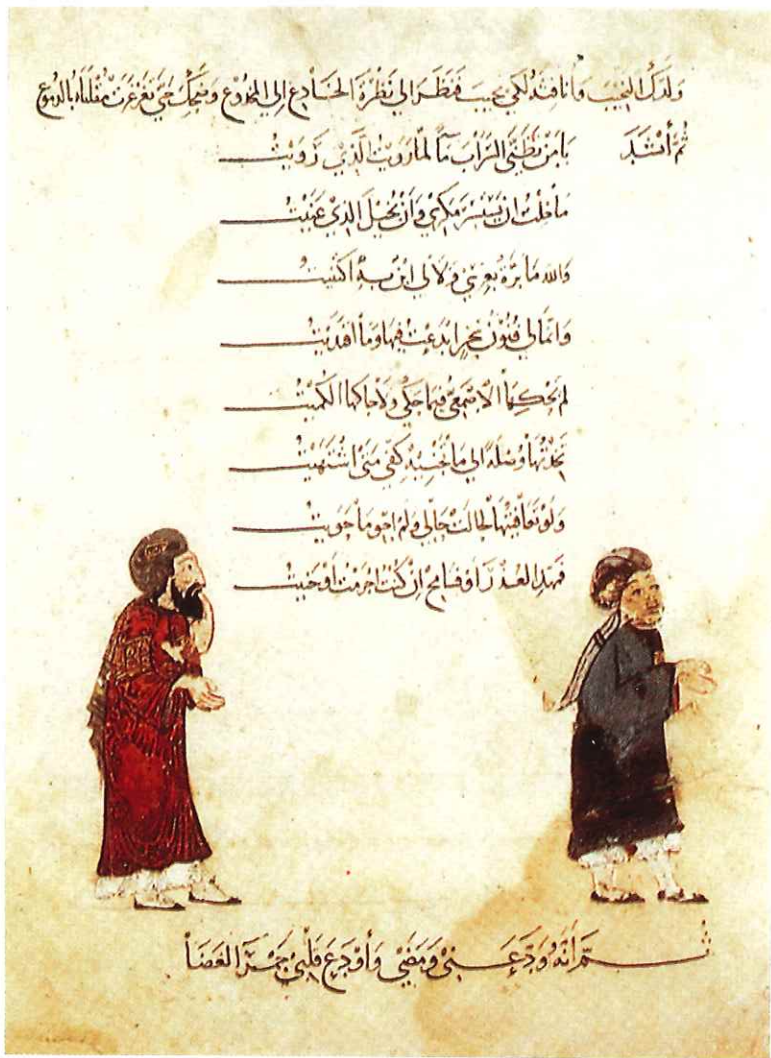 ولدك النجيب وأنافثه لكي يجيب فنظر الي نظرة الخادع الي المخدوع وضحك حتي تغرغرت مقلتاه بالدموع
ثم أنشد يا من تظنى السراب ماء لما رويت الذي رويت
ما خلت ان يستسر مكري وأن يخيل الذي عنيت
والله ما برة بعرسي ولا لي ابن به اكتنيت
وانما لي فنون سحر ابدعت فيها وما اقتديت
لم يحكها الاصمعي فيما حكى ولا حاكها الكميت
تخذتها وصلة الي ما تجنيه كفي متى اشتهيت
ولو تعافيتها لحالت حالي ولم احو ما حويت
فمهد العذر أو فسامح ان كنت اجرمت أو جنيت
ثم أنه ودعني ومضى وأودع قلبي جمر الغضا